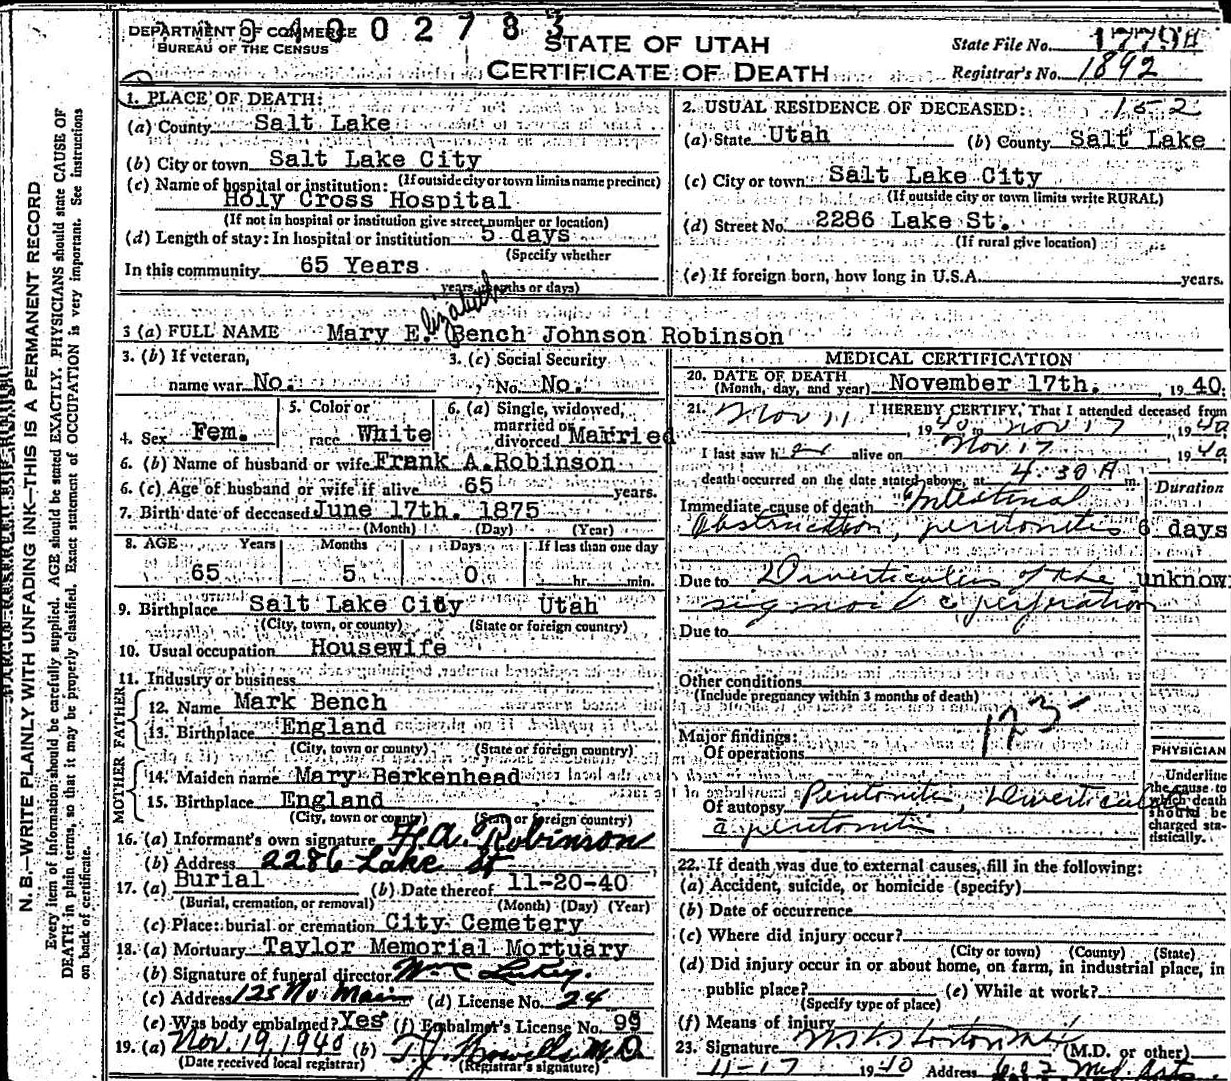 DEPARTMENT OF COMMERCE
BUREAU OF THE CENSUS
9 4 0 0 2 7 8 3
STATE OF UTAH
CERTIFICATE OF DEATH
State File No.
Registrar's No. 1892
1. PLACE OF DEATH:
(a) County Salt Lake
(b) City or town Salt Lake City
(If outside city or town limits name precinct)
(c) Name of hospital or institution:
Holy Cross Hospital
(If not in hospital or institution give street number or location)
(d) Length of stay: In hospital or institution 5 days
(Specify whether
In this community 65 Years
years, months or days)
2. USUAL RESIDENCE OF DECEASED: 152
(a) State Utah (b) County Salt Lake
(c) City or town Salt Lake City
(If outside city or town limits write RURAL)
(d) Street No. 2286 Lake St.
(If rural give location)
(e) If foreign born, how long in U.S.A. years.
3 (a) FULL NAME Mary E. Elizabeth Bench Johnson Robinson
3. (b) If veteran,
name war No.
3. (c) Social Security
No. No.
4. Sex Fem.
5. Color or
race White
6. (a) Single, widowed,
married or
divorced Married
6. (b) Name of husband or wife Frank A. Robinson
6. (c) Age of husband or wife if alive 65 years.
7. Birth date of deceased June 17th. 1875
(Month) (Day) (Year)
8. AGE Years Months Days If less than one day
65 5 0 hr. min.
9. Birthplace Salt Lake City Utah
(City, town, or county) (State or foreign country)
10. Usual occupation Housewife
11. Industry or business
FATHER
12. Name Mark Bench
13. Birthplace England
(City, town or county) (State or foreign country)
MOTHER
14. Maiden name Mary Berkenhead
15. Birthplace England
(City, town or county) (State or foreign country)
16. (a) Informant's own signature Robinson
(b) Address 2286 Lake St
17. (a) Burial (b) Date thereof 11-20-40
(Burial, cremation, or removal) (Month) (Day) (Year)
(c) Place: burial or cremation City Cemetery
18. (a) Mortuary Taylor Memorial Mortuary
(b) Signature of funeral director
(c) Address 125 No. Main (d) License No. 24
(e) Was body embalmed? Yes (f) Embalmer's License No. 99
19. (a) Nov. 19, 1940 (b) T. J. Howells M.D.
(Date received local registrar) (Registrar's signature)
MEDICAL CERTIFICATION
20. DATE OF DEATH
(Month, day, and year) November 17th. , 1940.
21. I HEREBY CERTIFY, That I attended deceased from
Nov 11 , 1940 to Nov 17 , 1940
I last saw her alive on Nov 17 1940
death occurred on the date stated above, at 4:30 A m.
Duration
Immediate cause of death Intestinal
obstruction, peritonitis 6 days
Due to Diverticulitis of the unknow
sigmoid c perforation
Due to
Other conditions
(Include pregnancy within 3 months of death)
123-
Major findings:
Of operations
PHYSICIAN
Underline
the cause to
which death
should be
charged sta-
tistically.
Of autopsy Peritonitis, Diverticulitis
c peritonitis
22. If death was due to external causes, fill in the following:
(a) Accident, suicide, or homicide (specify)
(b) Date of occurrence
(c) Where did injury occur?
(City or town) (County) (State)
(d) Did injury occur in or about home, on farm, in industrial place, in
public place? (e) While at work?
(Specify type of place)
(f) Means of injury
23. Signature (M.D. or other)
11-17 1940 Address Med. Arts
N. B.—WRITE PLAINLY WITH UNFADING INK—THIS IS A PERMANENT RECORD
Every item of information should be carefully supplied. AGE should be stated EXACTLY. PHYSICIANS should state CAUSE OF
DEATH in plain terms, so that it may be properly classified. Exact statement of OCCUPATION is very important. See instructions
on back of certificate.